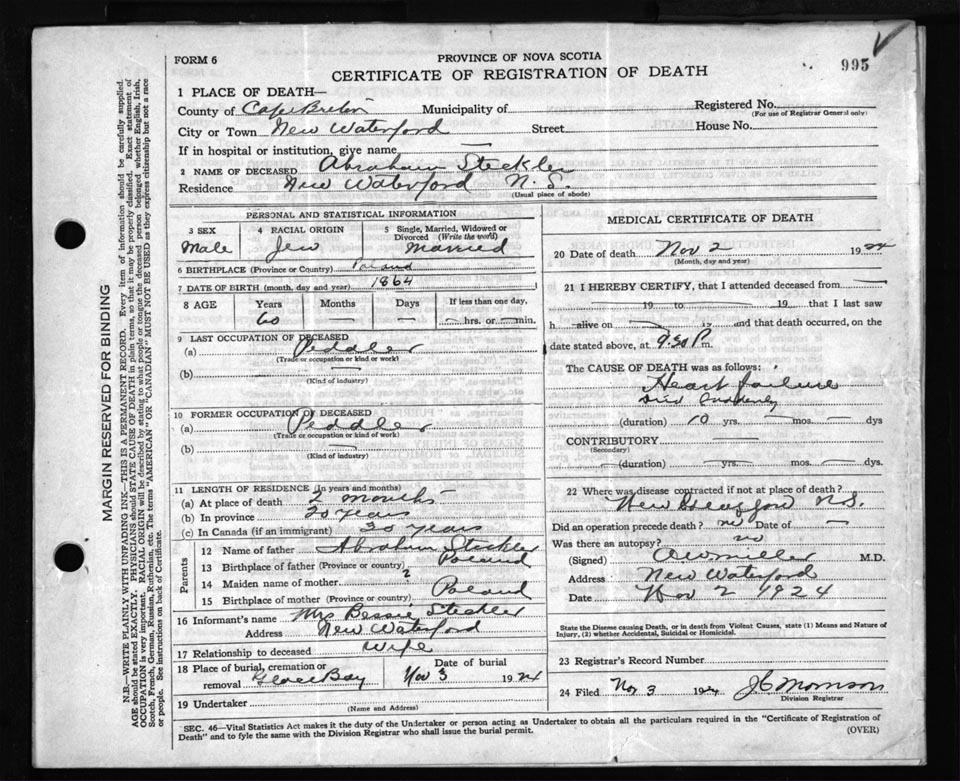 FORM 6
PROVINCE OF NOVA SCOTIA
CERTIFICATE OF REGISTRATION OF DEATH
995
1 PLACE OF DEATH—
County of Cape Breton Municipality of Registered No.
(For use of Registrar General only)
City or Town New Waterford Street House No.
If in hospital or institution, give name —
2 NAME OF DECEASED Abraham Steckler
Residence New Waterford N. S.
(Usual place of abode)
PERSONAL AND STATISTICAL INFORMATION
3 SEX Male
4 RACIAL ORIGIN Jew
5 Single, Married, Widowed or Divorced (Write the word) Married
6 BIRTHPLACE (Province or Country) Poland
7 DATE OF BIRTH (month, day and year) 1864
8 AGE Years 60 Months — Days — If less than one day, — hrs. or — min.
9 LAST OCCUPATION OF DECEASED
(a) Peddler
(Trade or occupation or kind of work)
(b) —
(Kind of industry)
10 FORMER OCCUPATION OF DECEASED
(a) Peddler
(Trade or occupation or kind of work)
(b) —
(Kind of industry)
11 LENGTH OF RESIDENCE (In years and months)
(a) At place of death 2 months
(b) In province 20 years
(c) In Canada (if an immigrant) 20 years
Parents
12 Name of father Abraham Steckler
13 Birthplace of father (Province or country) Poland
14 Maiden name of mother ?
15 Birthplace of mother (Province or country) Poland
16 Informant's name Mrs Bessie Steckler
Address New Waterford
17 Relationship to deceased Wife
18 Place of burial, cremation or removal Glace Bay
Date of burial Nov 3 1924
19 Undertaker
(Name and Address)
MEDICAL CERTIFICATE OF DEATH
20 Date of death Nov 2 1924
(Month, day and year)
21 I HEREBY CERTIFY, that I attended deceased from —
19 to 19 that I last saw
h alive on — 19 and that death occurred, on the
date stated above, at 9.30 P. m.
The CAUSE OF DEATH was as follows:
Heart failure
Died suddenly
(duration) 10 yrs. — mos. — dys
CONTRIBUTORY —
(Secondary)
(duration) yrs. mos. dys.
22 Where was disease contracted if not at place of death?
New N.S.
Did an operation precede death? no Date of —
Was there an autopsy? no
(Signed) Miller M.D.
Address New Waterford
Date Nov 2 1924
State the Disease causing Death, or in death from Violent Causes, state (1) Means and Nature of
Injury, (2) whether Accidental, Suicidal or Homicidal.
23 Registrar's Record Number
24 Filed Nov 3 1924 Morrison
Division Registrar
SEC. 46—Vital Statistics Act makes it the duty of the Undertaker or person acting as Undertaker to obtain all the particulars required in the "Certificate of Registration of
Death" and to fyle the same with the Division Registrar who shall issue the burial permit.
(OVER)
MARGIN RESERVED FOR BINDING
N.B.—WRITE PLAINLY WITH UNFADING INK—THIS IS A PERMANENT RECORD. Every item of information should be carefully supplied.
AGE should be stated EXACTLY. PHYSICIANS should STATE CAUSE OF DEATH in plain terms, so that it may be properly classified. Exact statement of
OCCUPATION is very important. RACIAL ORIGIN will be described by stating to what people or tongue the deceased person belonged whether English, Irish,
Scotch, French, German, Russian, Ruthenian, etc. The terms "AMERICAN" OR "CANADIAN" MUST NOT BE USED as they express citizenship but not a race
or people. See instructions on back of Certificate.